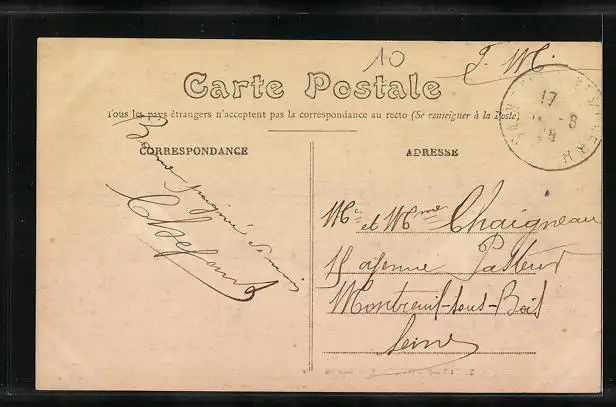 10
F. M.
Carte Postale
Tous les pays étrangers n'acceptent pas la correspondance au recto (Se renseigner à la Poste)
17
8
14
CORRESPONDANCE
ADRESSE
Bonne
Mr et Mme Chaigneau
15 avenue Pasteur
Montreuil-sous-Bois
Seine